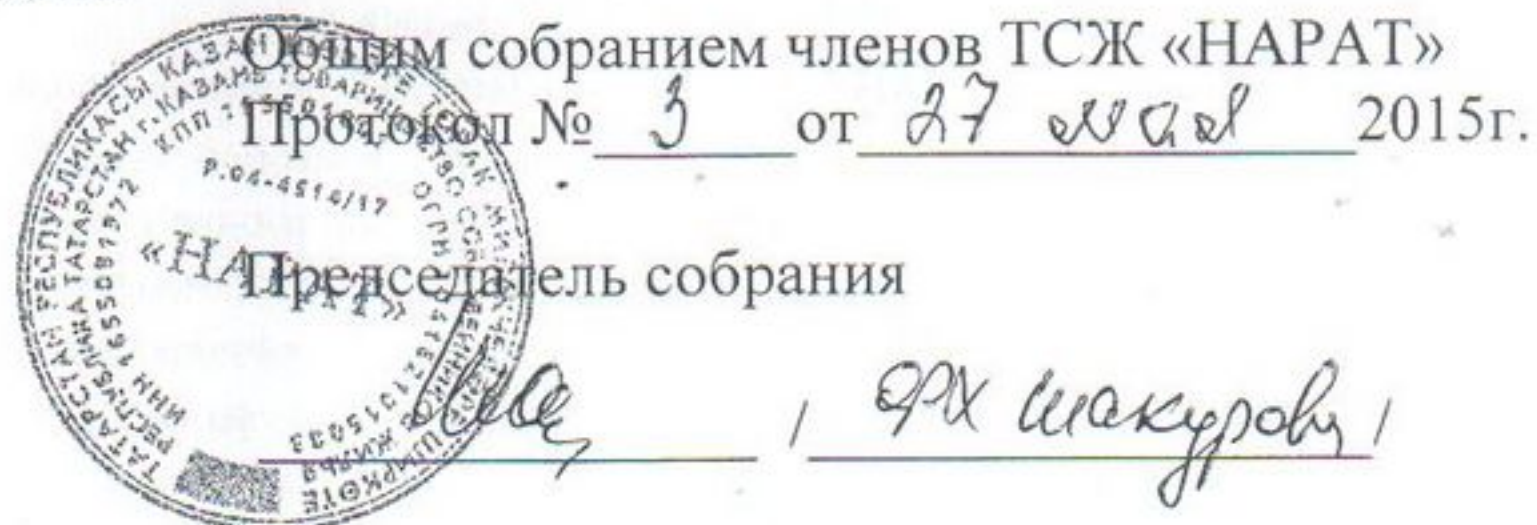 Общим собранием членов ТСЖ «НАРАТ»
Протокол № 3 от 27 мая 2015г.
Председатель собрания
/ Шакуров /
ТАТАРСТАН РЕСПУБЛИКАСЫ КАЗАН
РЕСПУБЛИКА ТАТАРСТАН г. КАЗАНЬ ТОВАРИЩЕСТВО СОБСТВЕННИКОВ ЖИЛЬЯ
ИНН 1655081972 КПП ОГРН
Р.04-4514/17
«НАРАТ»